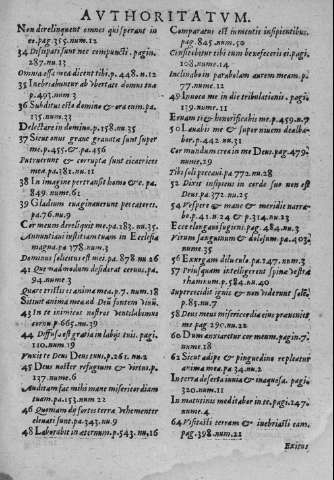 AVTHORITATVM.
Non derelinquent omnes qui sperant in
eo. pag 355. num. 12
34 Dissipati sunt nec compuncti. pagin.
287. nu. 13
Omnia ossa mea dicent tibi. p. 448. n. 12
35 Inebriabuntur ab vbertate domus tuæ
p. 493. num 3
36 Subditus esto domino & ora eum. pa.
135. num. 33
Delectare in domino. p. 158. nu. 35
37 Sicut onus graue grauatæ sunt super
me. p. 455. & pa. 456
Putruerunt & corruptæ sunt cicatrices
meæ pa. 382. nu. 11
38 In imagine pertransit homo &c. pa.
849. nume. 61
39 Gladium euaginauerunt peccatores.
pa. 76. nu. 9
Cor meum dereliquit me. pa. 183. nu. 35.
Annuntiaui iustitiam tuam in Ecclesia
magna. pa 178. num. 5
Dominus solicitus est mei. pa. 878 nu 26
41 Quemadmodum desiderat ceruus. pa.
94. nume 3
Quare tristis es anima mea. p. 7. num. 18
Sitiuit anima mea ad Deũ fontem viuũ.
43 In te inimicos nostros ventilabimus
cornu. p 665. nu. 39
44 Diffusa est gratia in labijs tuis. pagi.
110. num. 19
Vnxit te Deus Deus tuus. p. 261. nu. 2
45 Deus noster refugium & virtus. p.
137. nume. 6
Auditam fac mihi mane misericordiam
tuam. pa. 153. num 22
46 Quoniam dij fortes terræ vehementer
eleuati sunt. pa. 343. nu. 9
48 Laborabit in æternum. p. 543. nu. 16
Comparatus est iumentis insipientibus.
pag. 845. num. 50
Confitebitur tibi cum benefeceris ei. pagi.
108. nume. 14
Inclinabo in parabolam aurem meam. p.
77. num. 12
49 Inuoca me in die tribulationis. pagi.
139. nume. 11
Eruam te & honorificabis me. p. 459. n. 7
50 Lauabis me & super niuem dealba-
bor. p. 442. nu. 31
Cor mundum crea in me Deus. pag. 479.
nume. 29
Tibi soli peccaui. pa 772. nu. 28
52 Dixit insipiens in corde suo non est
Deus pa. 372. nu. 25
54 Vespere & mane & meridie narra-
bo. p. 41. n. 24 & p. 314. nu. 23
Ecce elongaui fugiens. pag. 484. nu. 3
Virum sanguinum & dolosum. pa. 403.
nume 35
56 Exurgam diluculo. pa. 147. num. 3
57 Priusquam intelligerent spinæ vestræ
rhamnum. p. 584. nu. 40
Supercecidit ignis & non viderunt solē.
p. 85. nu. 7
58 Deus meus misericordia eius præueniet
me pag 290. nu. 22
60 Dum anxiaretur cor meum. pagin. 7.
nume. 18
62 Sicut adipe & pinguedine repleatur
anima mea pa 34. nu. 2
In terra deserta inuia & inaquosa. pagi.
320. num. 11
In matutinis meditabor in te. pagi. 247.
nume. 4
64 Visitasti terram & inebriasti eam.
pag. 398. num. 21
Exitus